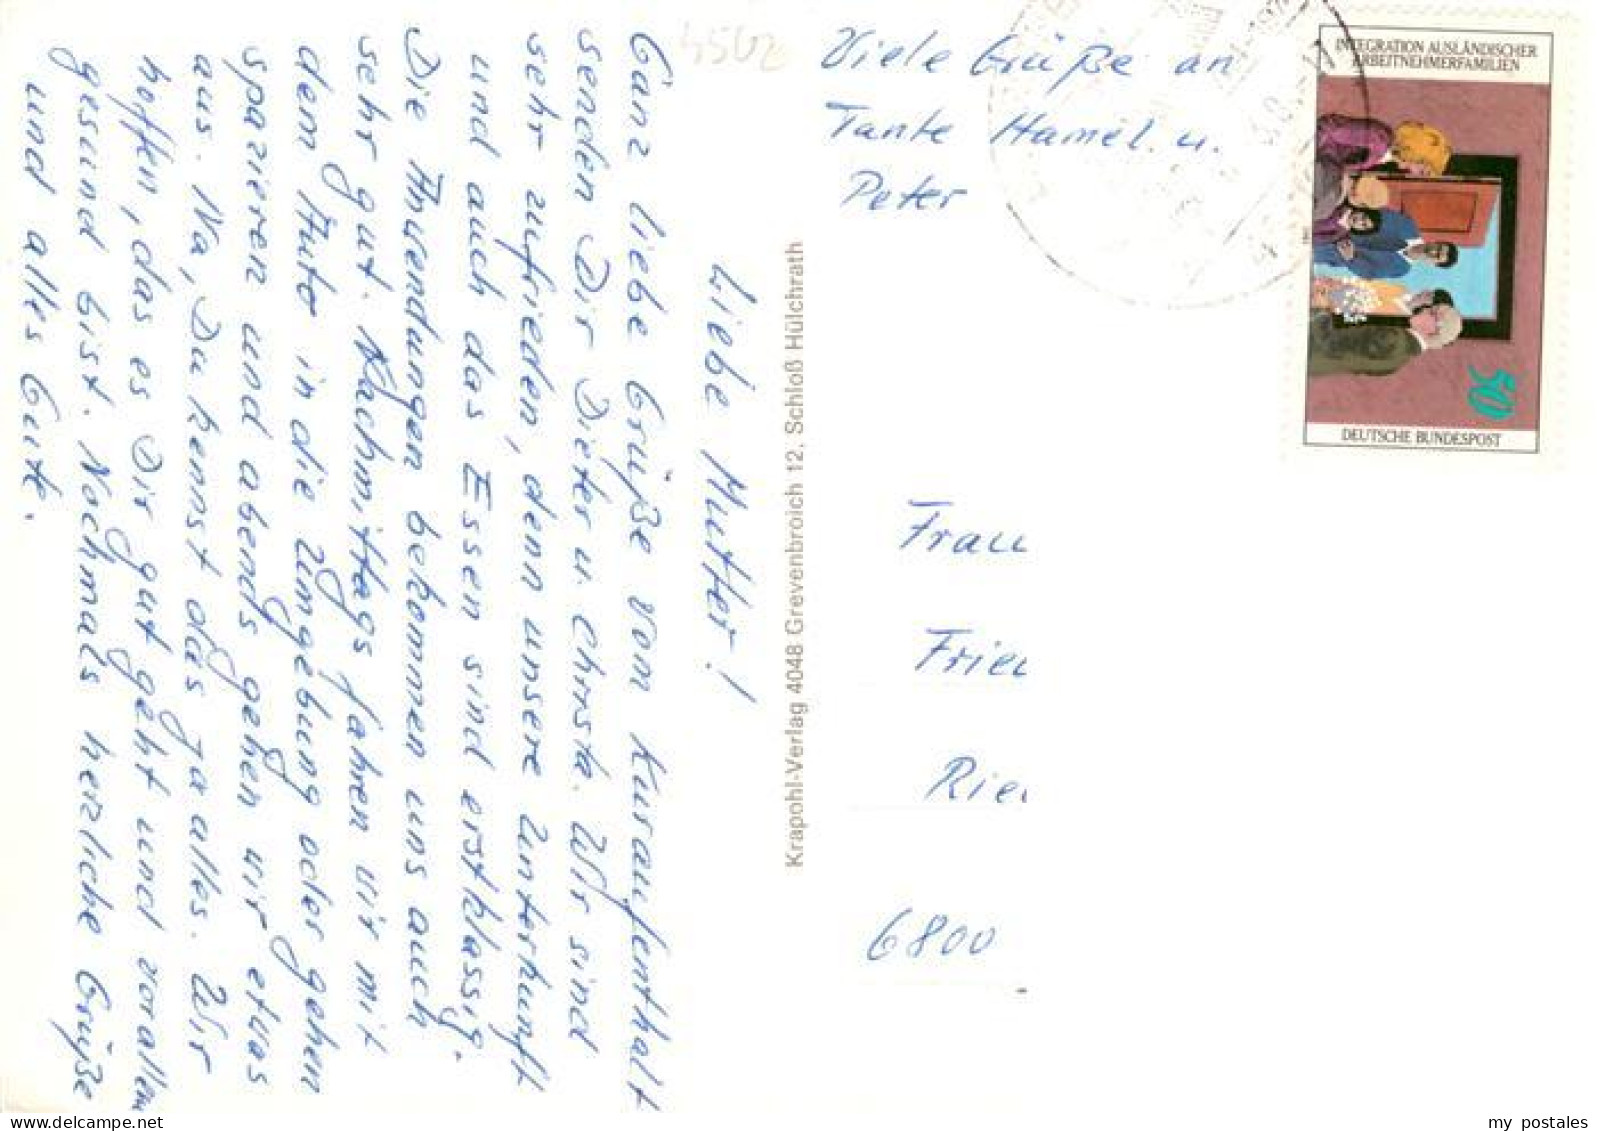 Liebe Mutter!
Ganz liebe Grüße vom Kuraufenthalt
senden Dir Dieter u. Christa. Wir sind
sehr zufrieden, denn unsere Unterkunft
und auch das Essen sind erstklassig.
Die Anwendungen bekommen uns auch
sehr gut. Nachmittags fahren wir mit
dem Auto in die Umgebung oder gehen
spazieren und abends gehen wir etwas
aus. Na, Du kennst das ja alles. Wir
hoffen, das es Dir gut geht und vorallem
gesund bist. Nochmals herzliche Grüße
und alles Gute.
4502
Krapohl-Verlag 4048 Grevenbroich 12, Schloß Hülchrath
Viele Grüße an
Tante Hamel. u.
Peter
INTEGRATION AUSLÄNDISCHER
ARBEITNEHMERFAMILIEN
50
DEUTSCHE BUNDESPOST
Frau
Frie
Rie
6800
my postales